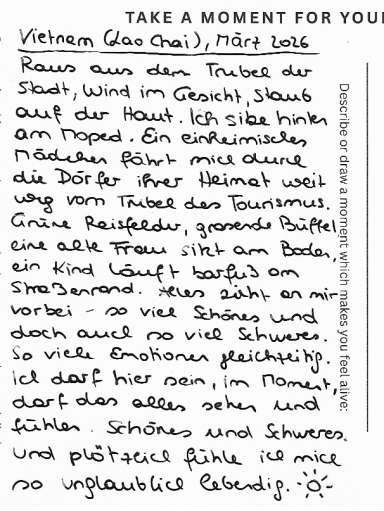 TAKE A MOMENT FOR YOU
Vietnam (Lao Chai), März 2026
Raus aus dem Trubel der
Stadt, Wind im Gesicht, Staub
auf der Haut. Ich sitze hinten
am Moped. Ein einheimisches
Mädchen fährt mich durch
die Dörfer ihrer Heimat weit
weg vom Trubel des Tourismus.
Grüne Reisfelder, grasende Büffel,
eine alte Frau sitzt am Boden,
ein Kind läuft barfuß am
Straßenrand. Alles zieht an mir
vorbei – so viel Schönes und
doch auch so viel Schweres.
So viele Emotionen gleichzeitig.
Ich darf hier sein, im Moment,
darf das alles sehen und
fühlen. Schönes und Schweres.
Und plötzlich fühle ich mich
so unglaublich lebendig.
Describe or draw a moment which makes you feel alive: